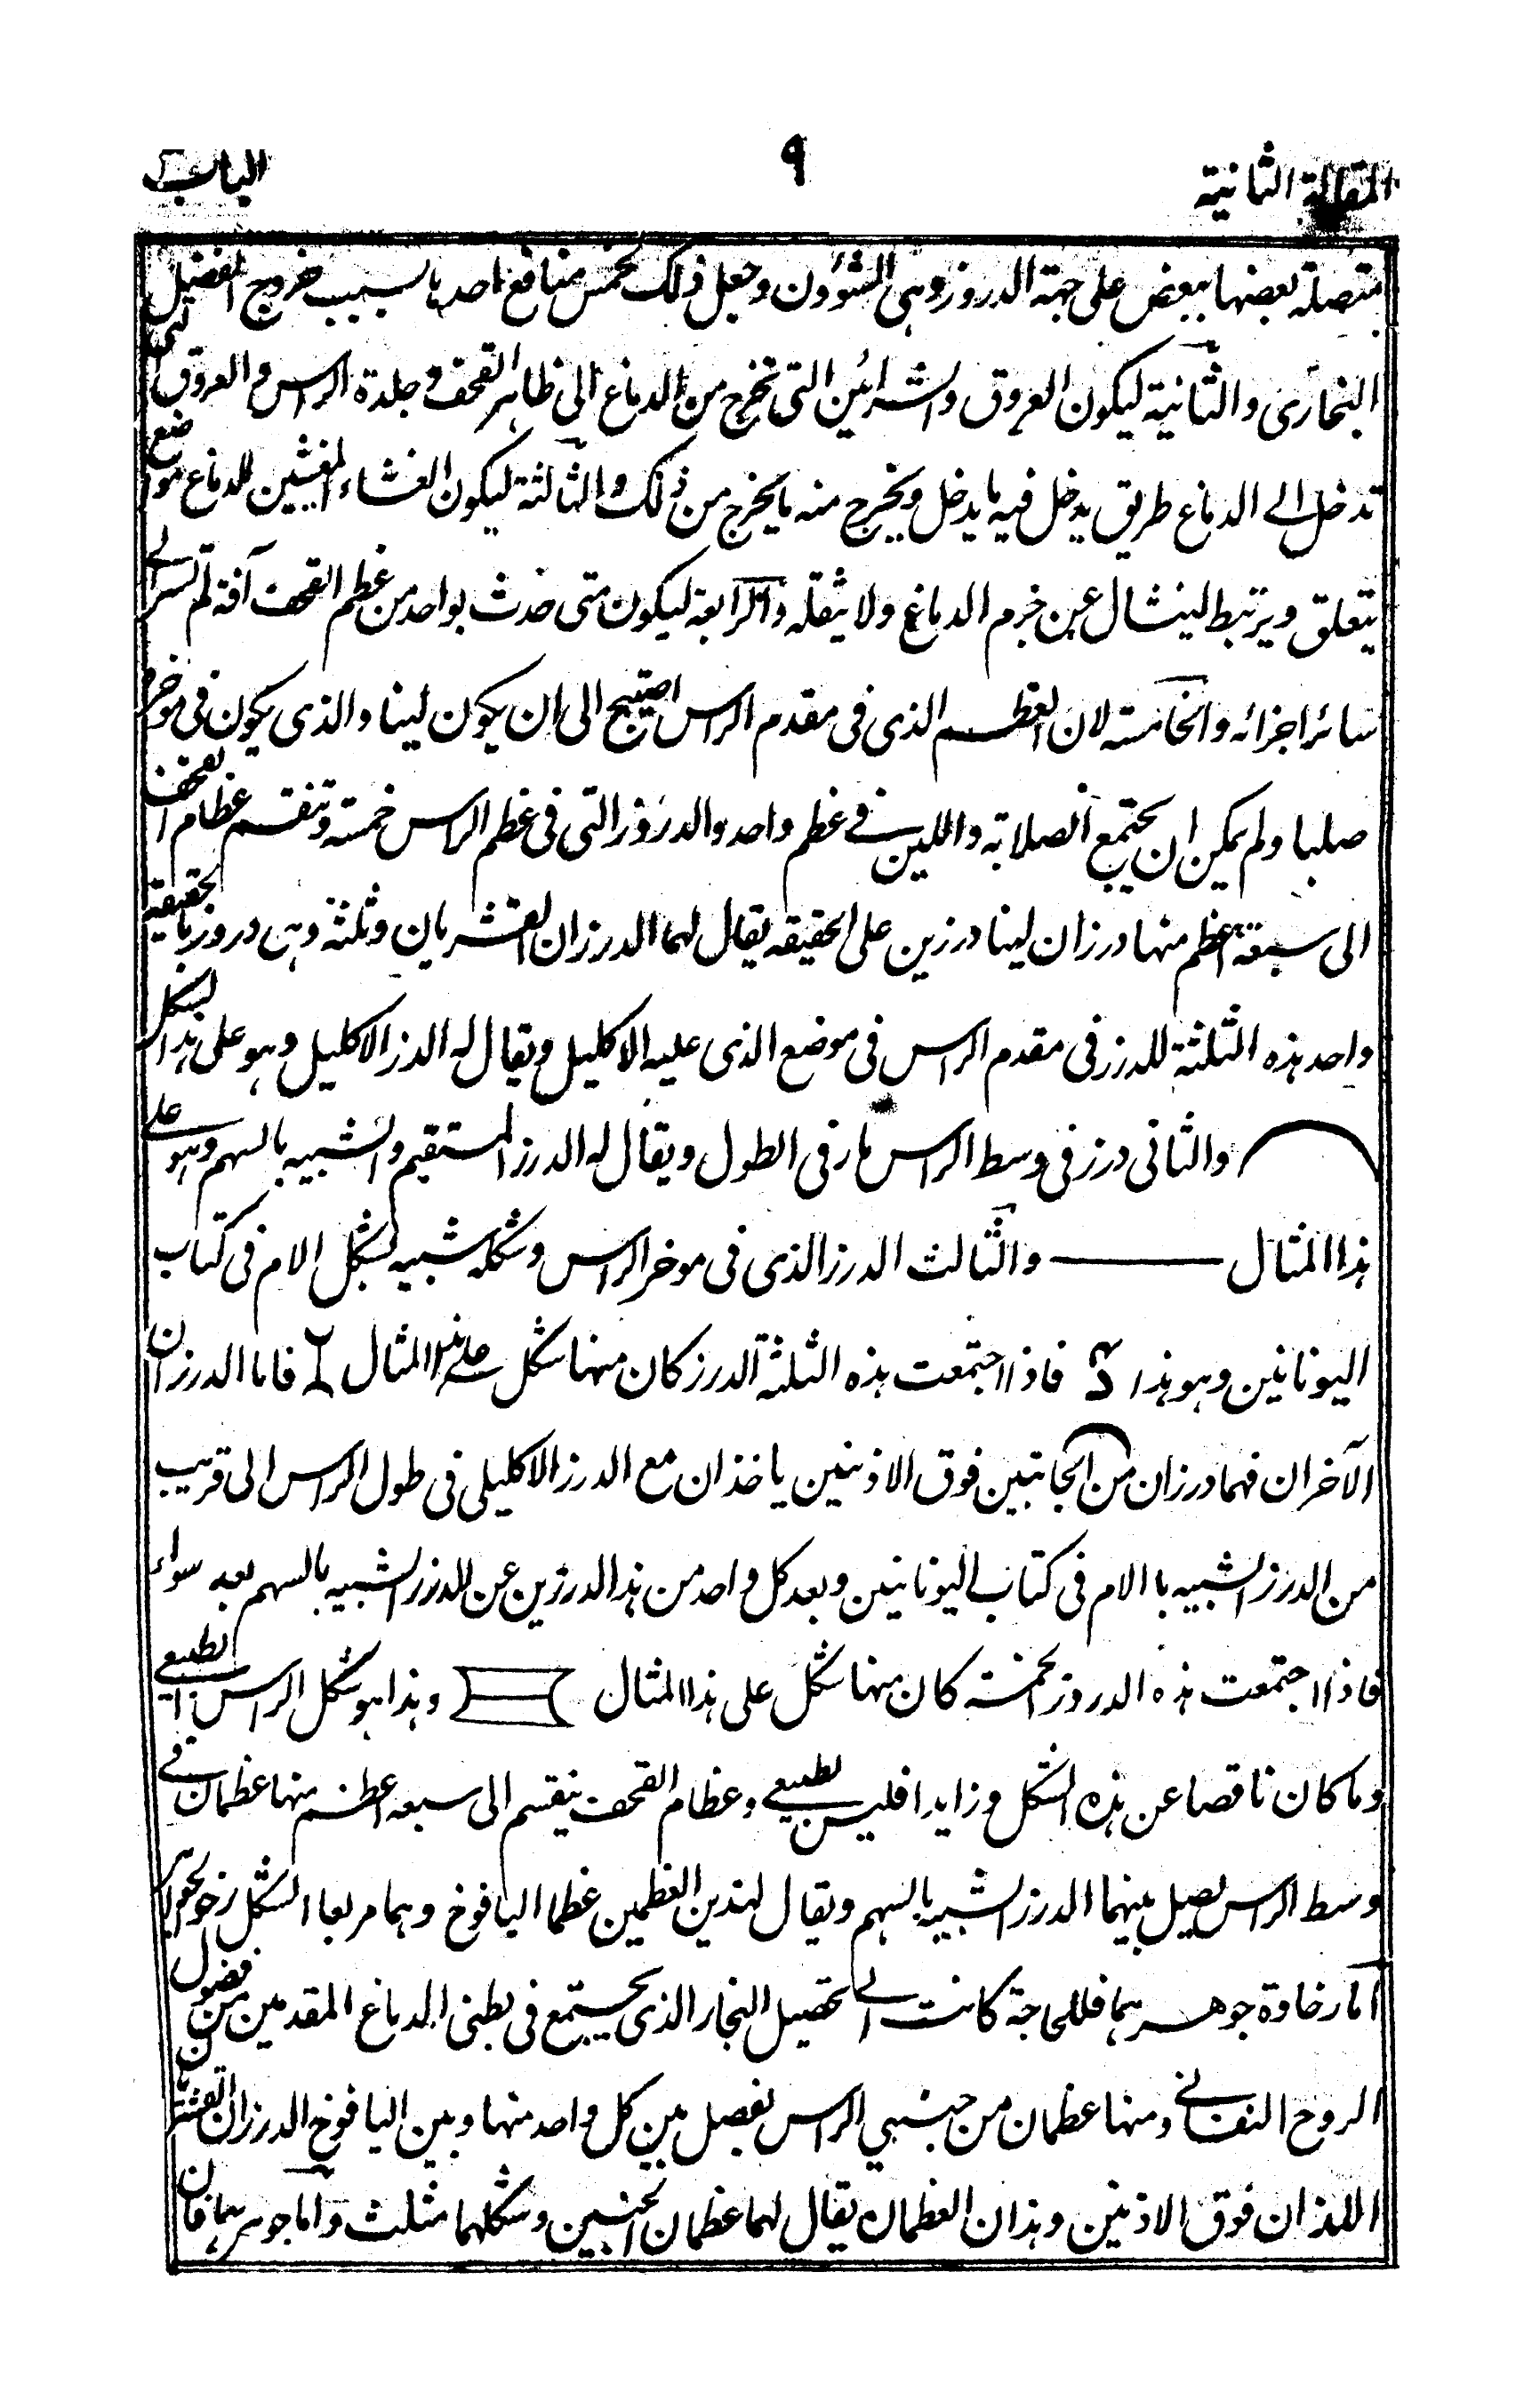 المقالة الثانية
٩
الباب
متصلة بعضها ببعض على جهة الدروز وهى الشوٴون وجعل ذلك لخمس منافع احدها بسبب خروج الفضل
البخارى والثانية ليكون العروق والشرائين التى تخرج من الدماغ الى ظاهر القحف وجلدة الراس والعروق التى
تدخل الى الدماغ طريق يدخل فيه ما يدخل ويخرج منه ما يخرج من ذلك والثالثة ليكون الغشاء المغشين للدماغ موضع
يتعلق ويرتبط لينشال عن جرم الدماغ ولا يثقله والرابعة ليكون متى حدث بواحد من عظم القحف آفة لم تسر الى
سائر اجزائه والخامسة لان العظم الذى فى مقدم الراس احتيج الى ان يكون لينا والذى يكون فى موخره
صلبا ولم يمكن ان يجتمع الصلابة واللين فى عظم واحد والدروز التى فى عظم الراس خمسة وتنقسم عظام القحف
الى سبعة اعظم منها درزان لينا درزين على الحقيقه يقال لهما الدرزان القشريان وثلثة وهى دروز بالحقيقية
واحد هذه الثلثة للدرز فى مقدم الراس فى موضع الذى عليه الاكليل ويقال له الدرز الاكليل وهو على هذا الشكل
والثانى درز فى وسط الراس مار فى الطول ويقال له الدرز المستقيم والشبيه بالسهم وهو على
هذا المثال والثالث الدرز الذى فى موخر الراس وشكله شبيه بشكل الام فى كتاب
اليونانين وهو هذا فاذا اجتمعت هذه الثلثة الدرز كان منها شكل على هذا المثال فاما الدرزان
الآخران فهما درزان من الجانبين فوق الاذنين ياخذان مع الدرز الاكليلى فى طول الراس الى قريب
من الدرز الشبيه با الام فى كتاب اليونانين وبعد كل واحد من هذا الدرزين عن الدرز الشبيه بالسهم بعد سواء
فاذا اجتمعت هذه الدروز الخمسة كان منها شكل على هذا المثال وهذا هو شكل الراس الطبيعى
وما كان ناقصا عن هذه الشكل وزايدا فليس بطبيعى وعظام القحف ينقسم الى سبعه اعظم منها عظمان فى
وسط الراس يصل بينهما الدرز الشبيه بالسهم ويقال لهذين العظمين عظما اليافوخ وهما مربعا الشكل
اما رخاوة جوهرهما فللحاجة كانت الى تحصيل البخار الذى يجتمع فى بطنى الدماغ المقدمين من فضول
الروح النفسانى ومنها عظمان من جنبى الراس يفصل بين كل واحد منها وبين اليافوخ الدرزان القشريان
اللذان فوق الاذنين وهذان العظمان يقال لهما عظمان الجنبين وشكلهما مثلث واما جوهرهما فان